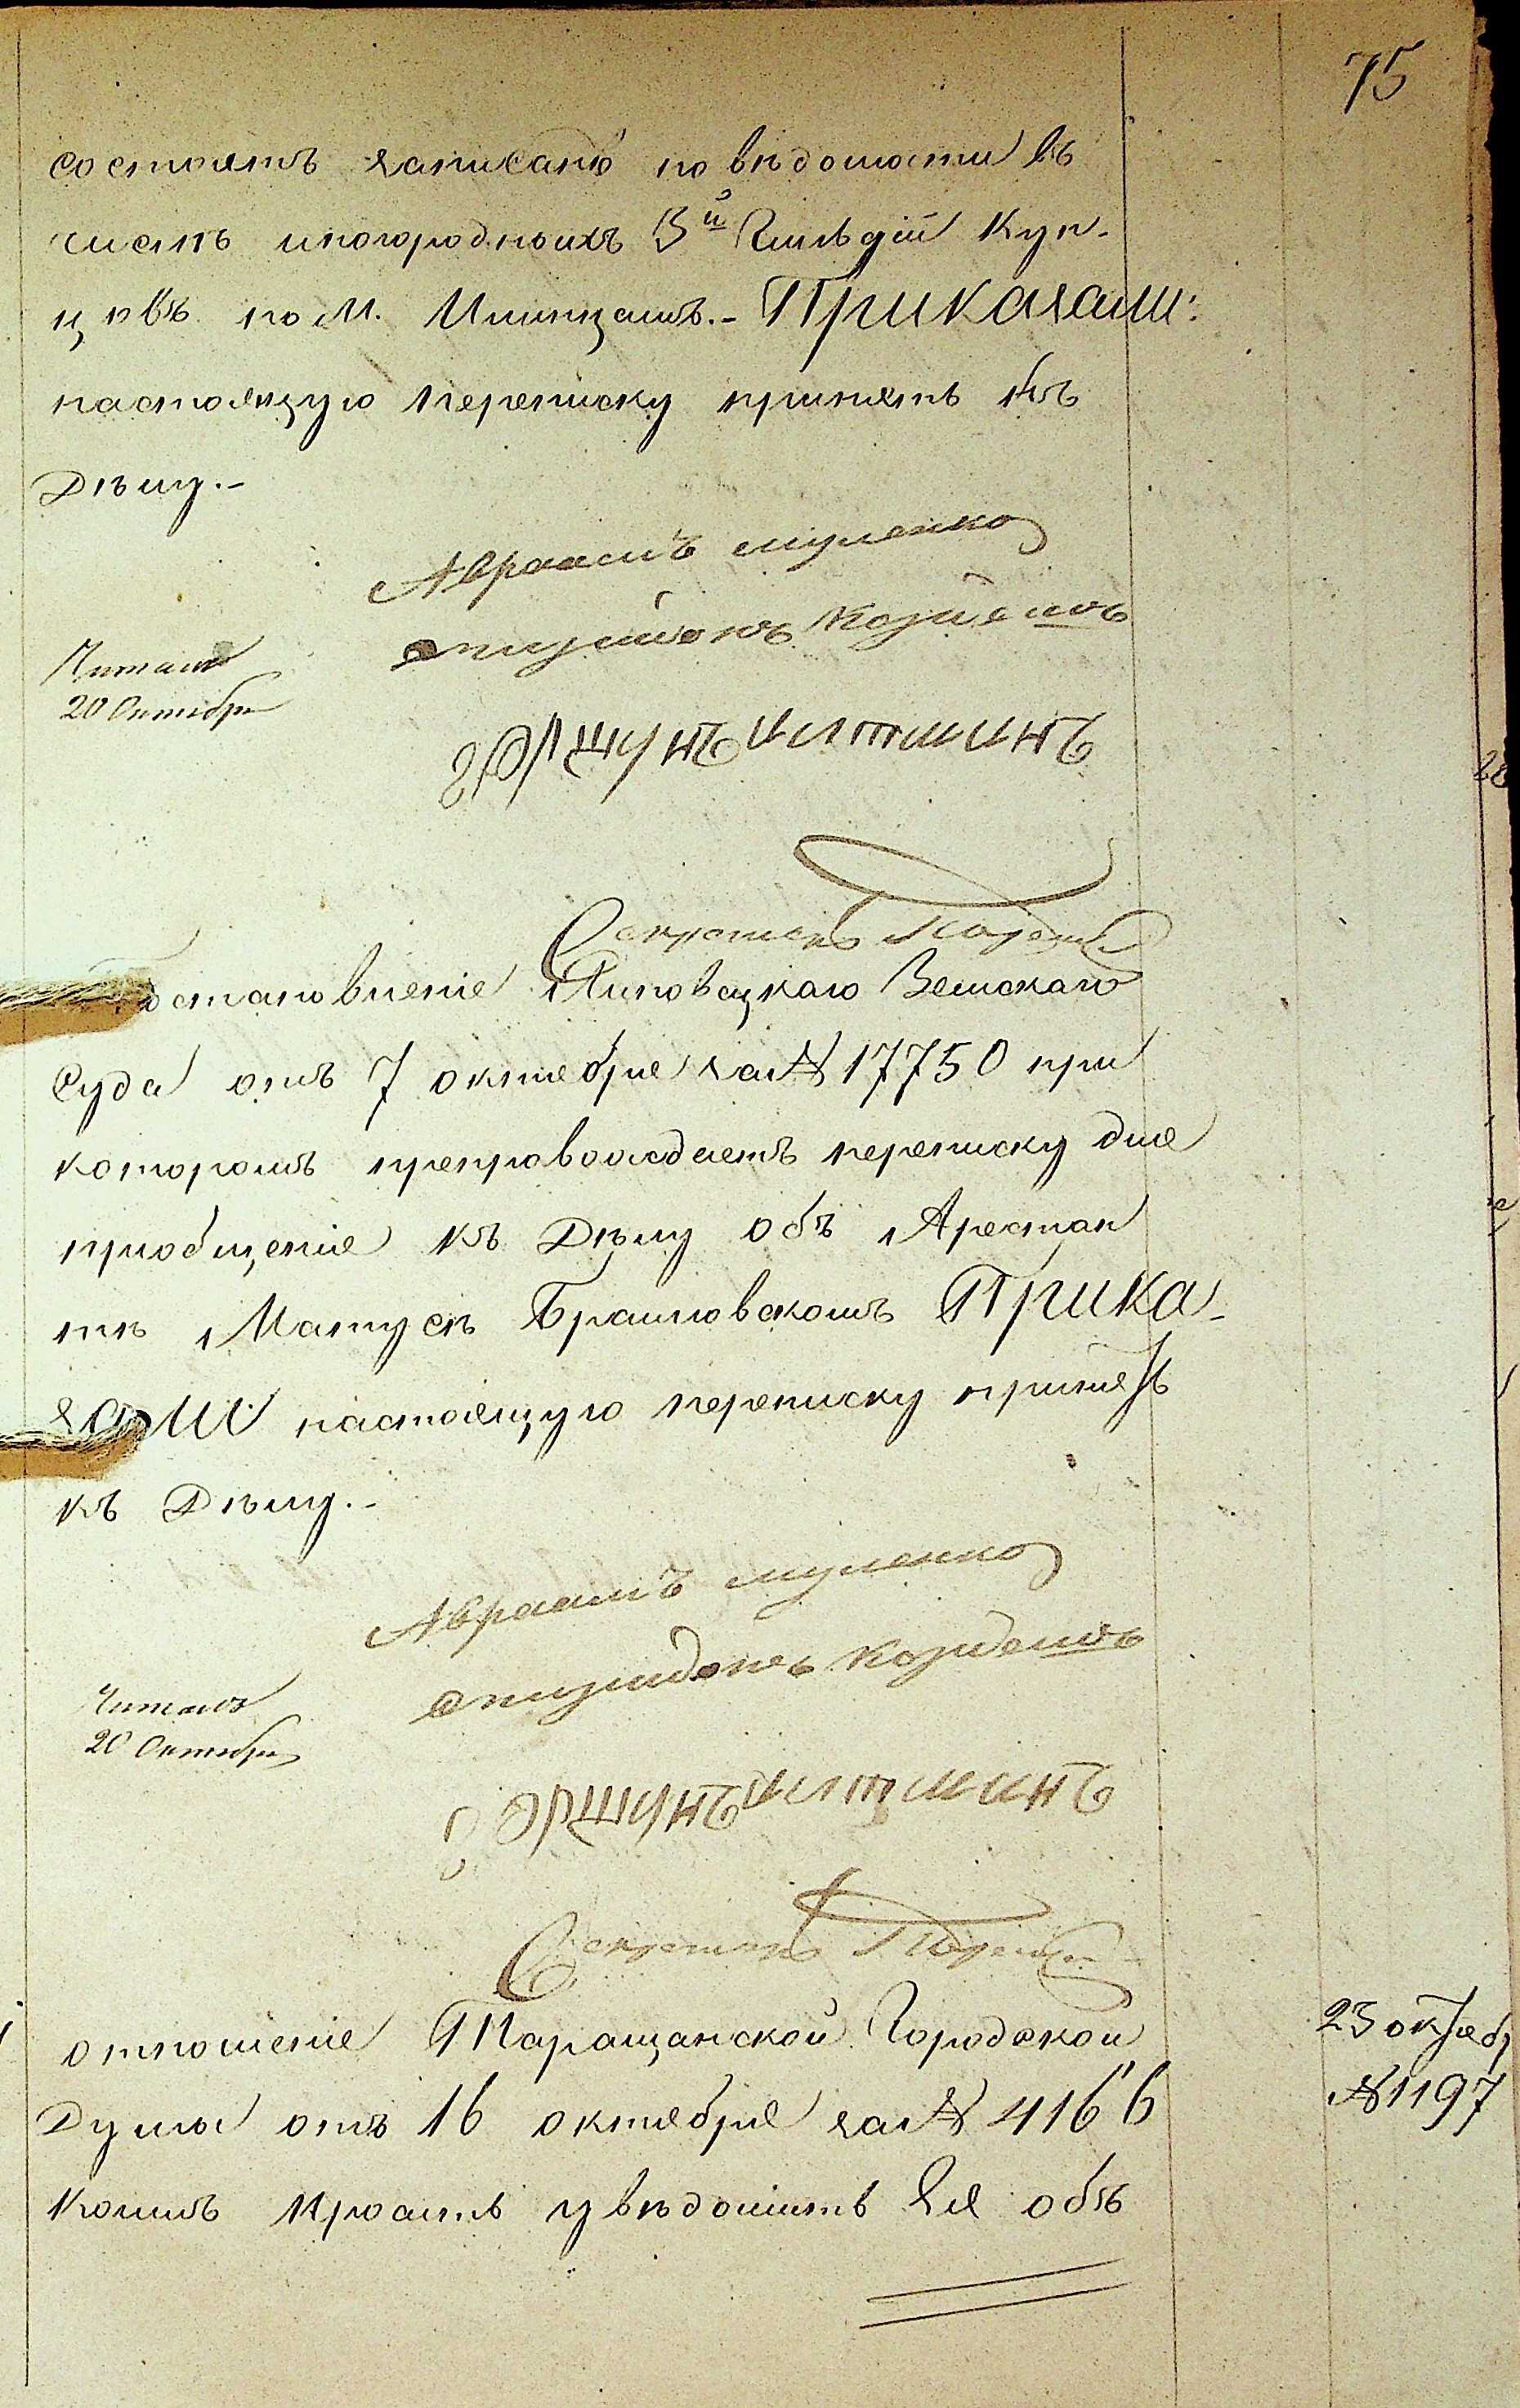 75
состоятъ записаны по вѣдомости въ
числѣ иногородныхъ 3й Гильдіи Куп-
цовъ по М. Илинцамъ.- Приказали:
настоящую переписку принять къ
Дѣлу.-
Авраамъ
Читалъ
20 Октября
Секретарь
Постановленіе Липовецкаго Земскаго
Суда отъ 7 октября за № 17750 при
которомъ препровождаетъ переписку для
пріобщенія къ Дѣлу объ Арестан
тѣ Матусѣ Браиловскомъ Прика-
зали настоящую переписку принять
къ Дѣлу.-
Авраамъ
Читалъ
20 Октября
Секретарь
отношеніе Таращанской Городской
Думы отъ 16 октября за № 4166
коимъ проситъ увѣдомить Ея объ
23 октяб
№ 1197